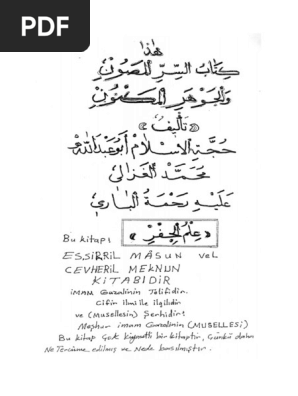 PDF
هٰذا
كِتَابُ السِّرِّ المَصُونِ
وَالجَوْهَرِ المَكْنُونِ
«تَأليفُ»
حُجَّةِ الاِسْلَامِ أَبُو عَبْدُ اللّٰه
مُحَمَّد الغَزَالي
عَلَيْهِ رَحْمَةُ البَارِي
«عِلْمُ الجَفْرِ»
Bu kitapı
ESSIRRIL MASUN veL
CEVHERİL MEKNUN
KİTABIDIR
iMAM Gazalinin Telifidir.
Cifir ilmi ile ilgilidir
ve (Musellesin) Şerhidir!
Meşhur imam Gazalinin (MUSELLESi)
Bu kitap Çok Kıymetli bir kitaptır, Çünkü daha
Ne Tercüme edilmiş ve Nede basılmıştır.